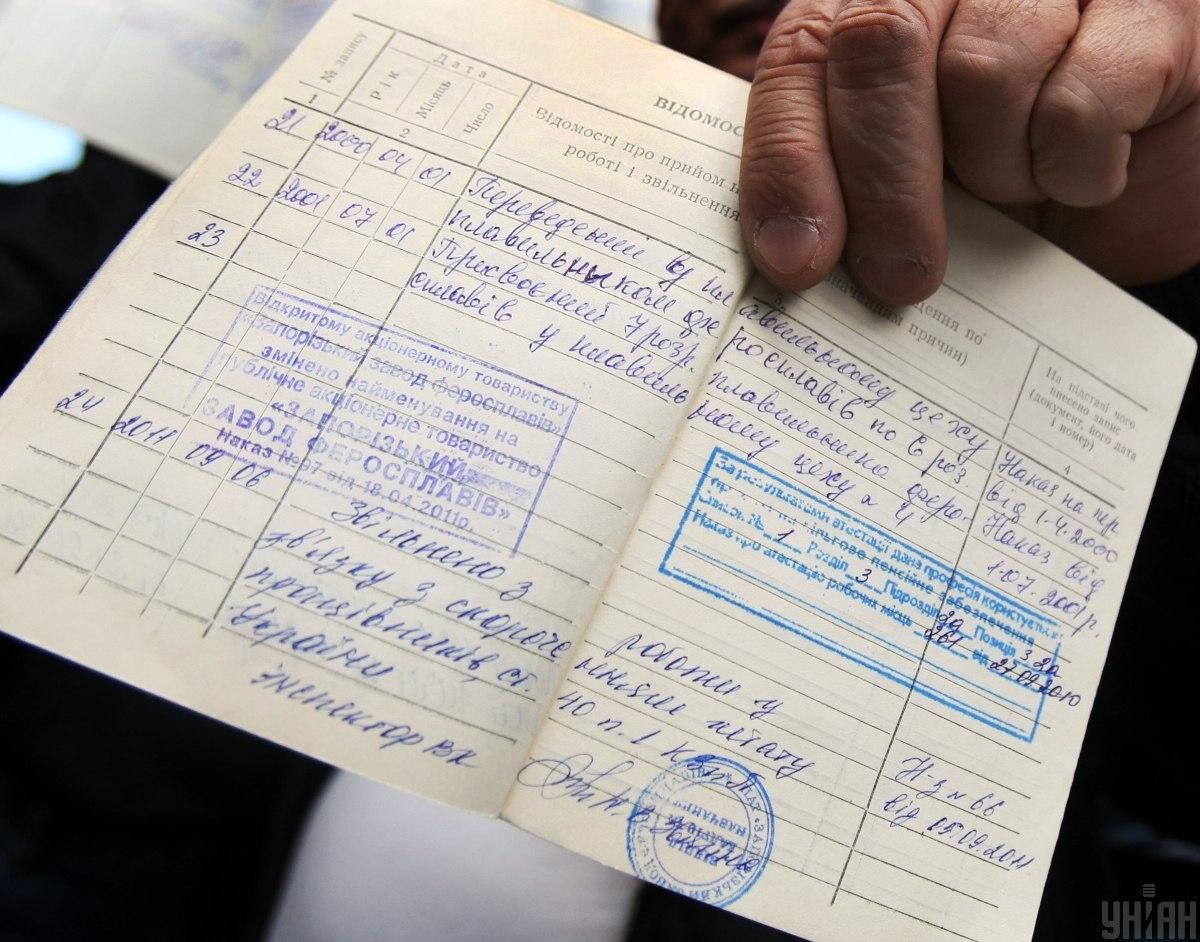 ВІДОМОС
№ запису
Дата
Рік
Місяць
Число
Відомості про прийом н
роботі і звільнення
едення по
значенням причин)
На підставі чого
внесено запис
(документ, його дата
і номер)
1
2
3
4
21 2000 04 01 Переведений у пл
авильному цеху
Наказ на пер
плавильником фе
росплавів по 6 роз.
від 1.4.2000
22 2001 07 01 Присвоєний 7 розр.
плавильника феро-
Наказ від
сплавів у плавиль
ному цеху № 4
1.07.2001р.
23
Відкритому акціонерному товариству
«Запорізький завод феросплавів»
змінено найменування на
публічне акціонерне товариство
«ЗАПОРІЗЬКИЙ
ЗАВОД ФЕРОСПЛАВІВ»
Наказ №97 від 18.04.2011р.
За результатами атестації дана професія користується
правом на пільгове пенсійне забезпечення
Список № 1 Розділ 3 Підрозділ Позиція
Наказ про атестацію робочих місць 261 від 27.09.2010
24 2011 09 06 Звільнено з
роботи у
звязку з скороче
нням штату
працівників, ст.
40 п.1 КЗпП
України
Н-з № 66
від 05.09.2011
Інспектор ВК
УНІАН